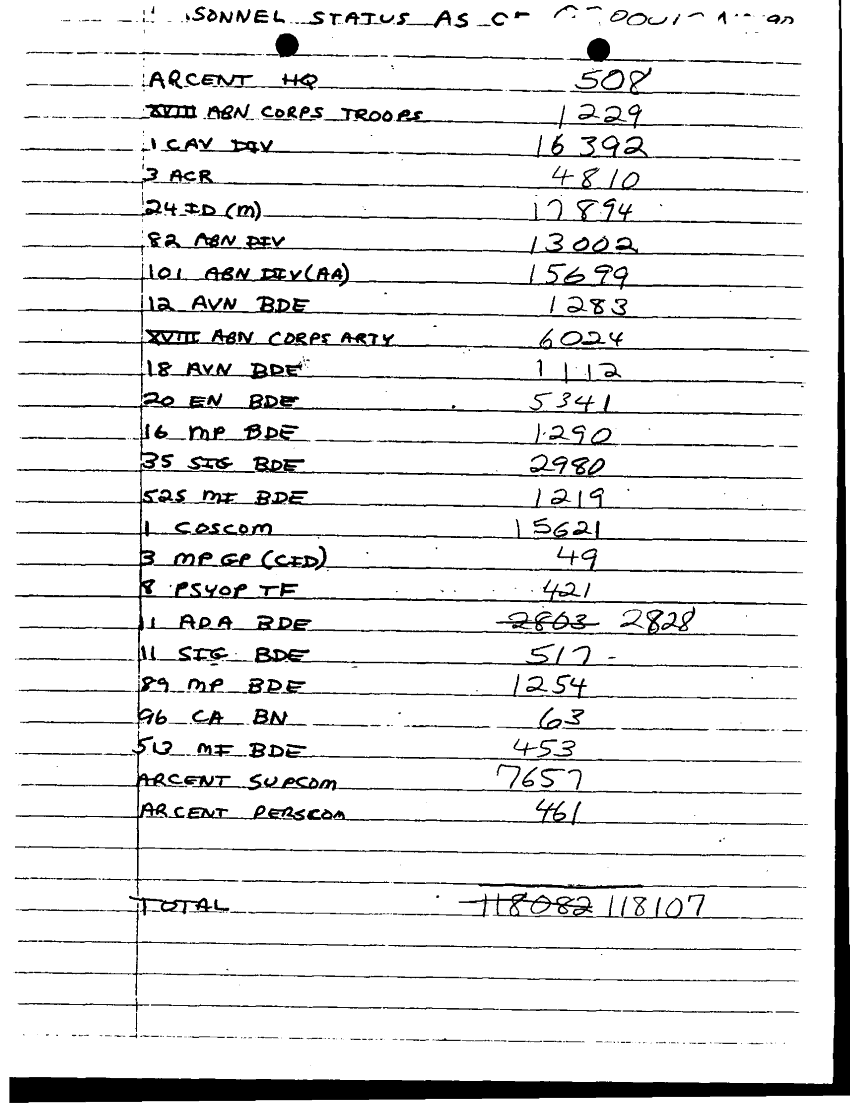 SONNEL STATUS AS OF
ARCENT HQ 508
XVIII ABN CORPS TROOPS 1229
1 CAV DIV 16392
3 ACR 4810
24 ID (M) 17894
82 ABN DIV 13002
101 ABN DIV (AA) 15699
12 AVN BDE 1283
XVIII ABN CORPS ARTY 6024
18 AVN BDE 1112
20 EN BDE 5341
16 MP BDE 1290
35 SIG BDE 2980
525 MI BDE 1219
1 COSCOM 15621
3 MP GP (CID) 49
8 PSYOP TF 421
11 ADA BDE 2803 2828
11 SIG BDE 517
89 MP BDE 1254
96 CA BN 63
513 MI BDE 453
ARCENT SUPCOM 7657
ARCENT PERSCOM 461
TOTAL 118082 118107